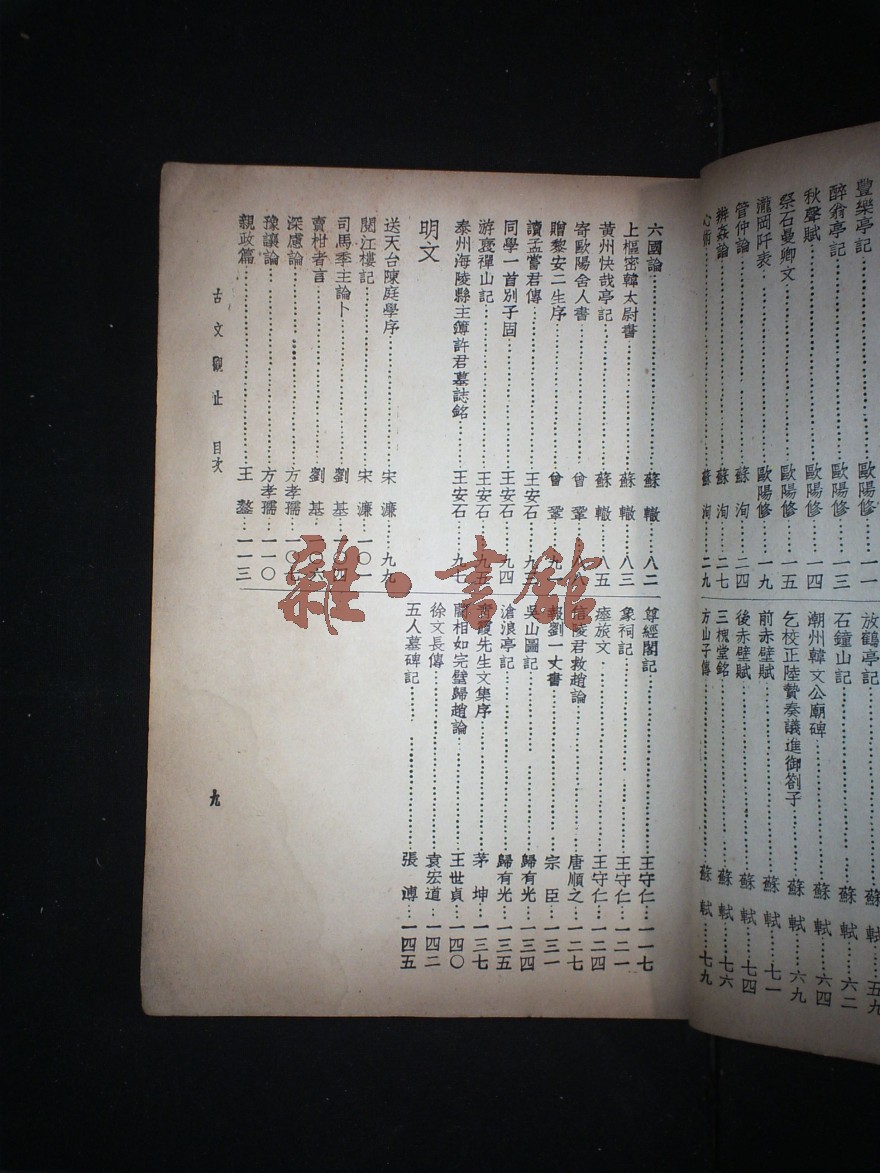 豐樂亭記 歐陽修 一一
醉翁亭記 歐陽修 一三
秋聲賦 歐陽修 一四
祭石曼卿文 歐陽修 一五
瀧岡阡表 歐陽修 一九
管仲論 蘇洵 二四
辨姦論 蘇洵 二七
心術 蘇洵 二九
放鶴亭記 蘇軾 五九
石鐘山記 蘇軾 六二
潮州韓文公廟碑 蘇軾 六四
乞校正陸贄奏議進御劄子 蘇軾 六九
前赤壁賦 蘇軾 七一
後赤壁賦 蘇軾 七四
三槐堂銘 蘇軾 七六
方山子傳 蘇軾 七九
六國論 蘇轍 八二
上樞密韓太尉書 蘇轍 八三
黃州快哉亭記 蘇轍 八五
寄歐陽舍人書 曾鞏 八八
贈黎安二生序 曾鞏 九一
讀孟嘗君傳 王安石 九三
同學一首別子固 王安石 九四
游褒禪山記 王安石 九五
泰州海陵縣主簿許君墓誌銘 王安石 九七
明文
送天台陳庭學序 宋濂 九九
閱江樓記 宋濂 一〇一
司馬季主論卜 劉基 一〇四
賣柑者言 劉基 一〇六
深慮論 方孝孺 一〇七
豫讓論 方孝孺 一一〇
親政篇 王鏊 一一三
尊經閣記 王守仁 一一七
象祠記 王守仁 一二一
瘞旅文 王守仁 一二四
信陵君救趙論 唐順之 一二七
報劉一丈書 宗臣 一三一
吳山圖記 歸有光 一三四
滄浪亭記 歸有光 一三五
青霞先生文集序 茅坤 一三七
藺相如完璧歸趙論 王世貞 一四〇
徐文長傳 袁宏道 一四二
五人墓碑記 張溥 一四五
古文觀止 目次
九
雜·書館